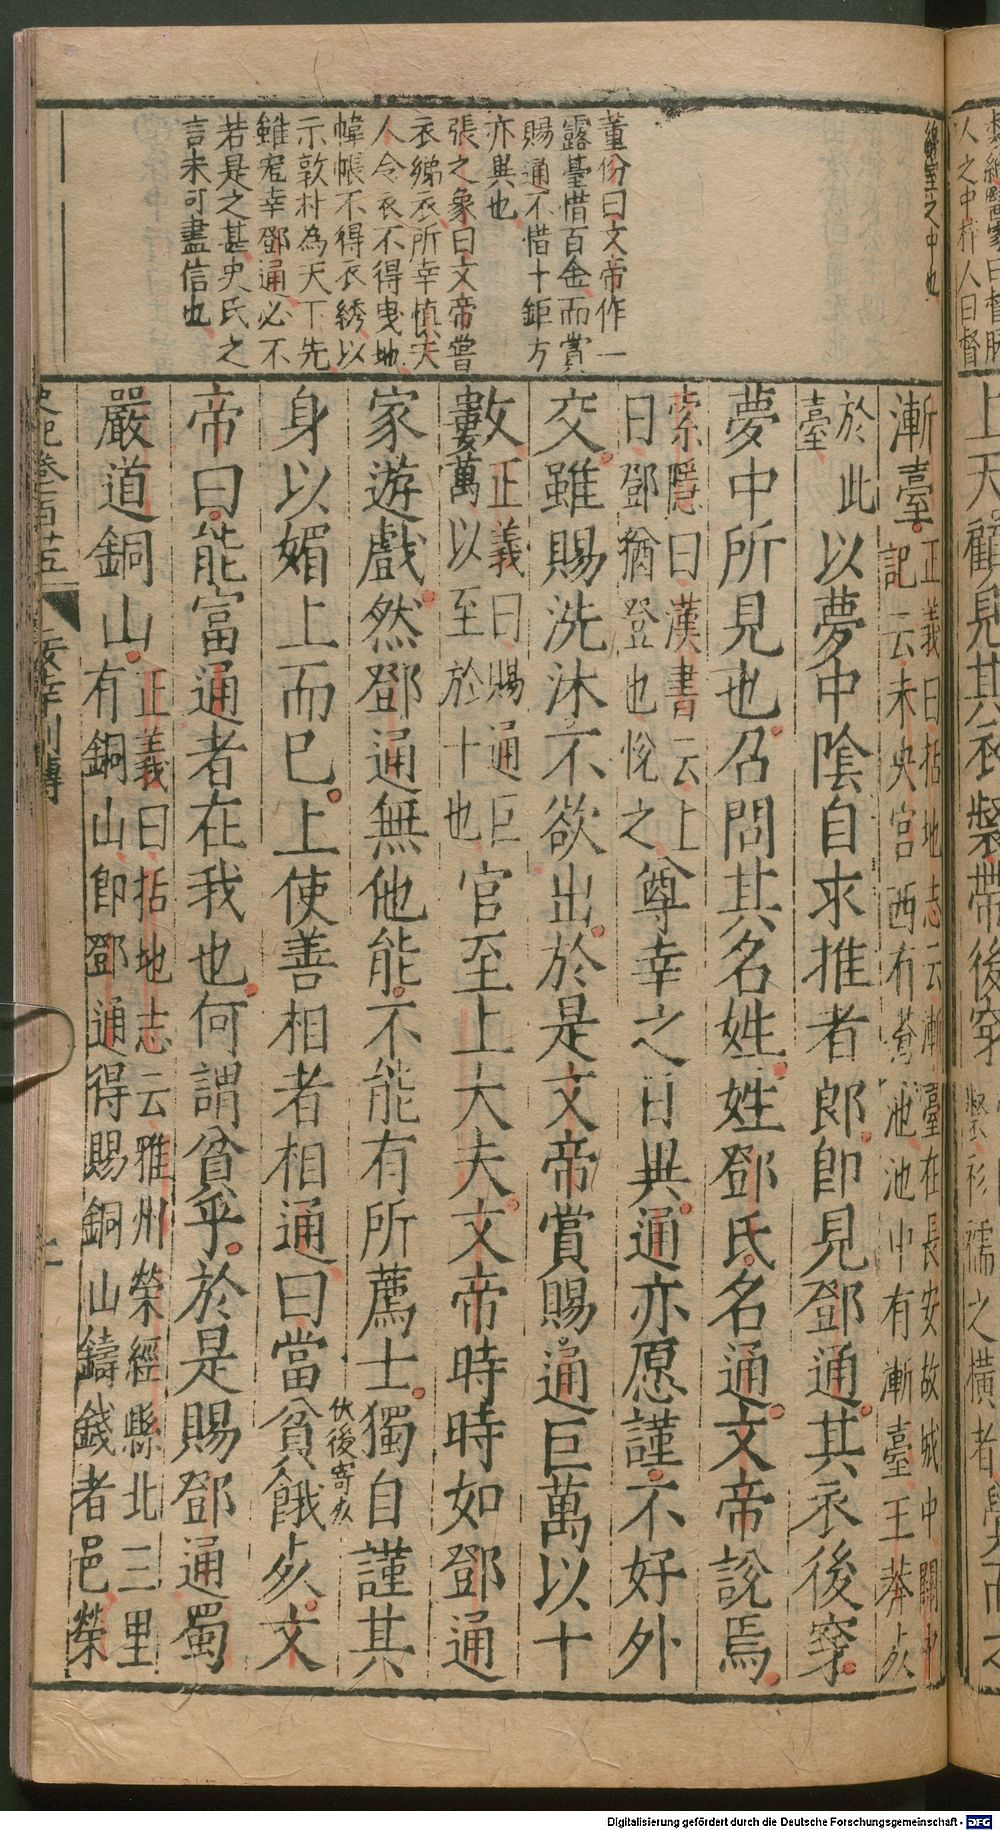 緣室之中也
董份曰文帝作一
露臺惜百金而賞
賜通不惜十鉅方
亦異也
張之象曰文帝嘗
衣綈衣所幸慎夫
人令衣不得曳地
幃帳不得衣綉以
示敦朴為天下先
雖寵幸鄧通必不
若是之甚史氏之
言未可盡信也
漸臺正義曰括地志云漸臺在長安故城中關中
記云未央宮西有蒼池池中有漸臺王莽死
於此
臺以夢中陰自求推者郎即見鄧通其衣後穿
夢中所見也召問其名姓姓鄧氏名通文帝說焉
索隱曰漢書云上
曰鄧猶登也悅之尊幸之日異通亦愿謹不好外
交雖賜洗沐不欲出於是文帝賞賜通巨萬以十
數正義曰賜通巨
萬以至於十也官至上大夫文帝時時如鄧通
家遊戲然鄧通無他能不能有所薦士獨自謹其
身以媚上而已上使善相者相通曰當貧餓死文
伏後寄死
帝曰能富通者在我也何謂貧乎於是賜鄧通蜀
嚴道銅山正義曰括地志云雅州榮經縣北三里
有銅山即鄧通得賜銅山鑄錢者邑榮
史記卷百廿五
佞幸列傳
上天顧見其衣裻帶後穿
裻衫襦之橫者
人之中
人曰督
Digitalisierung gefördert durch die Deutsche Forschungsgemeinschaft - DFG